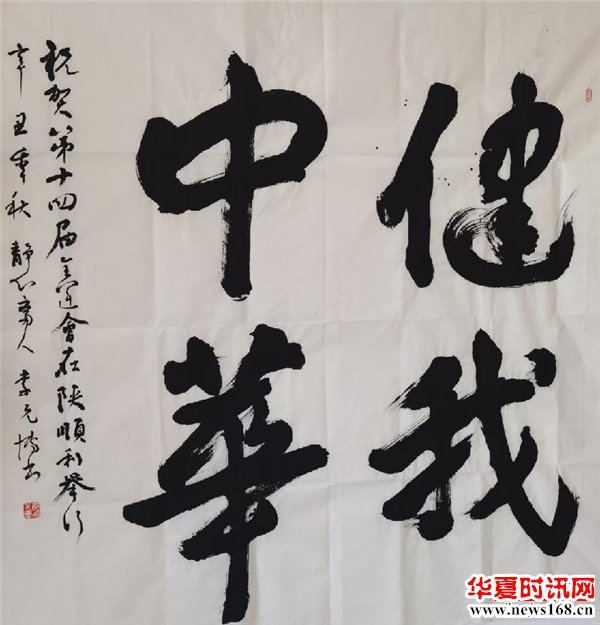 健我
中華
祝贺第十四届全运會在陕順利举行
辛丑季秋 静心斋人 李元博书
华夏时讯网
www.news168.cn